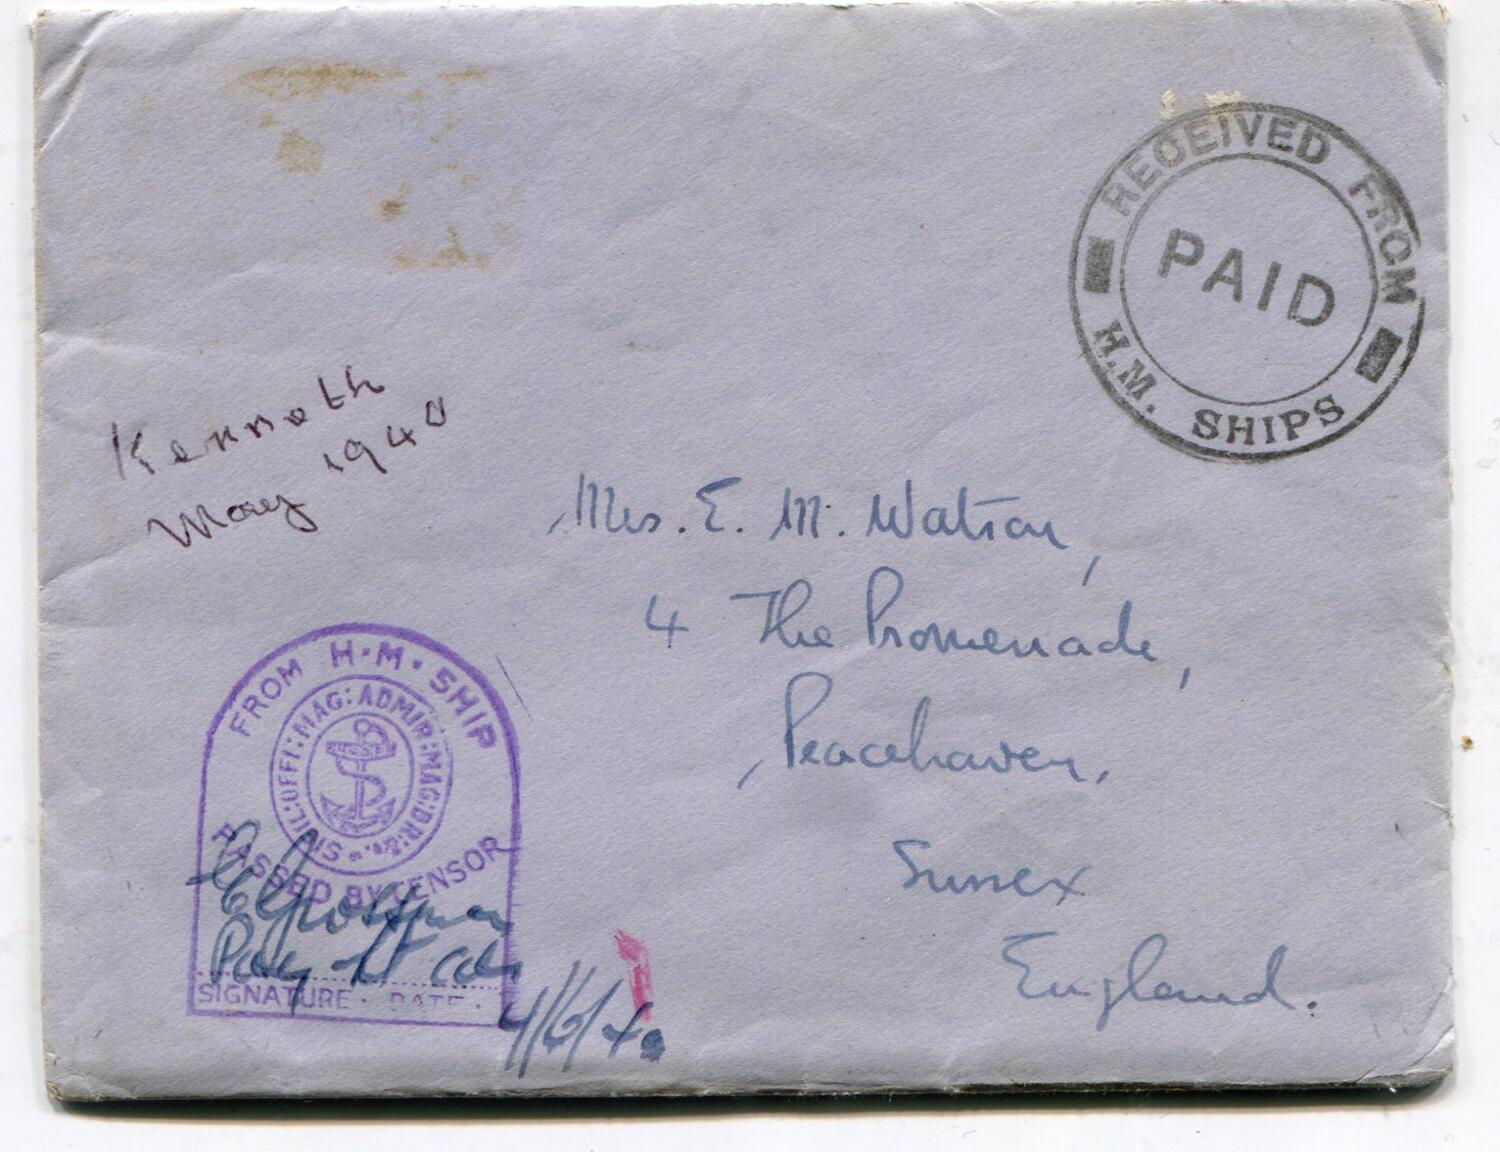 RECEIVED FROM
PAID
H.M. SHIPS
Kenneth
May 1940
Mrs. E. M. Watson,
4 The Promenade,
Peacehaven,
Sussex
England.
FROM H·M· SHIP
SIGIL:OFFI:MAG:ADMIR:MAG:BR:&c.
PASSED BY CENSOR
Pay Lt Cdr
SIGNATURE · DATE ·
4/6/40